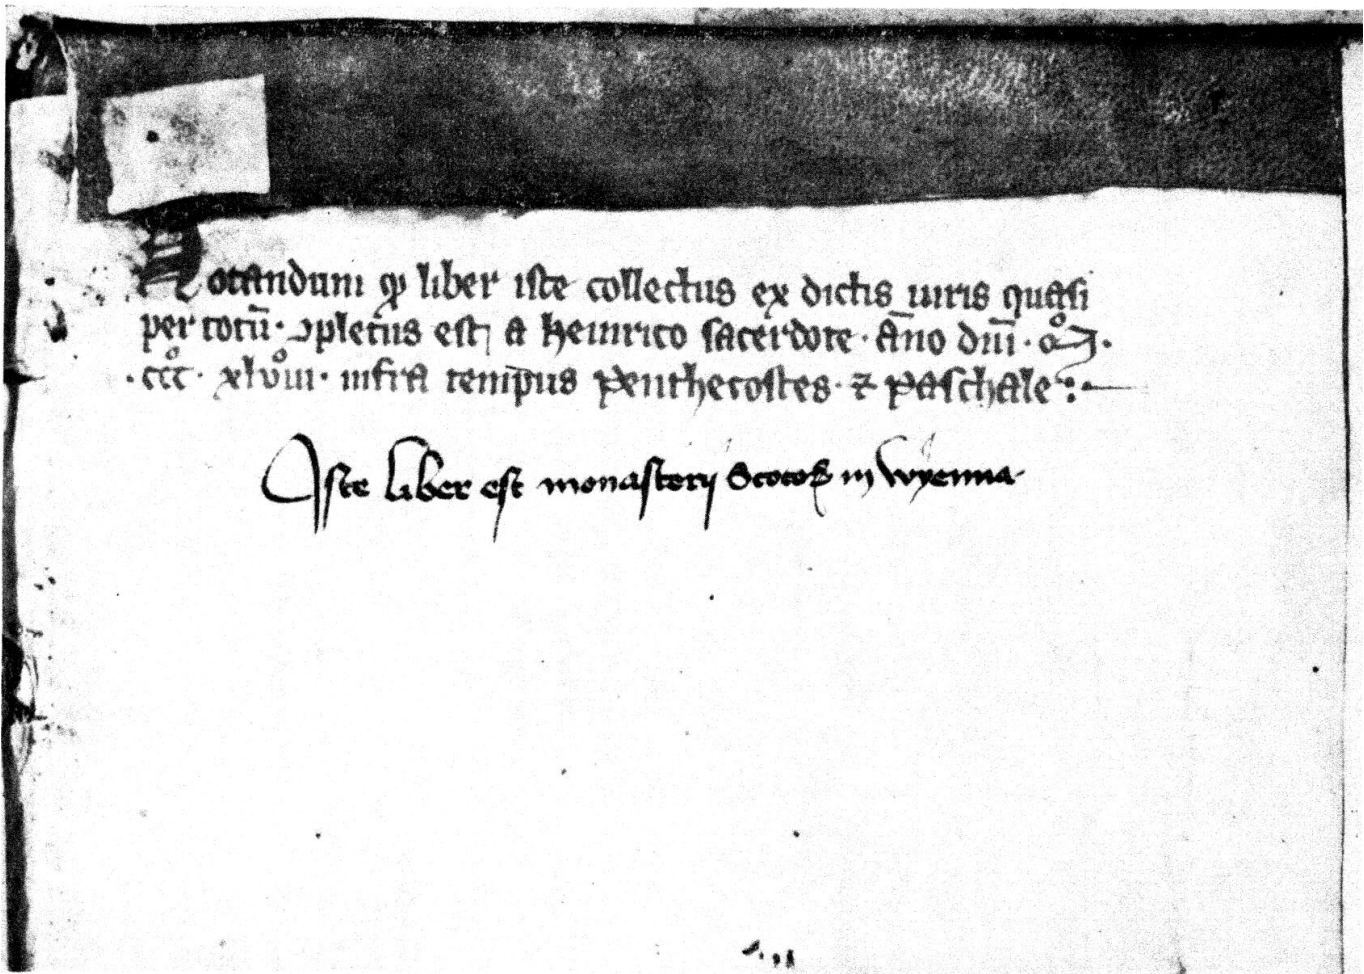 Notandum ꝙ liber iste collectus ex dictis iuris quasi
per totū · ꝯpletus est a heinrico sacerdote · āno dn̄i · mͦ ·
· cccͦ · xlvͦiii · infra temp̄us penthecostes · ⁊ paschale :·
Iste liber est monasterij Scotoꝝ in Wyenna ·